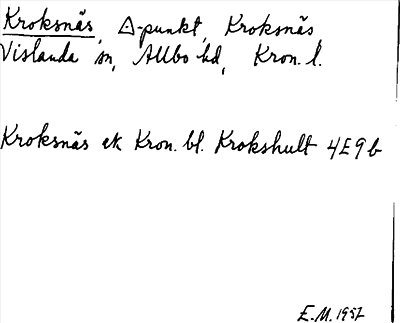 Kroksnäs, △-punkt, Kroksnäs,
Vislanda sn, Allbo hd, Kron. l.
Kroksnäs ek Kron. bl. Krokshult 4E9b
E.M. 1957